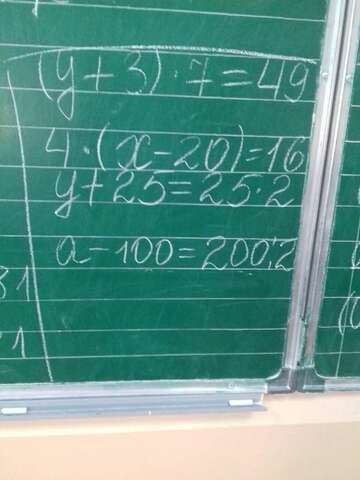 (y+3)·7=49
4·(x-20)=16
y+25=25·2
a-100=200:2
31
1